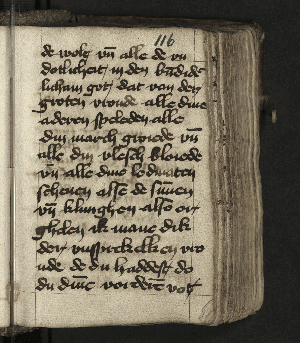 116
de wolt vn̄ alle de vn
dotlicheit in den
licham got dat van den
groten vroude alle dine
aderen speleden alle
din march groide vn̄
alle din vlesch bloiede
vn̄ alle dine ledmaten
schenen alse de sunnen
vn̄ klunghen alse or
ghelen ik mane dik
der vnsprekeliken vro
ude de du haddest do
du vor